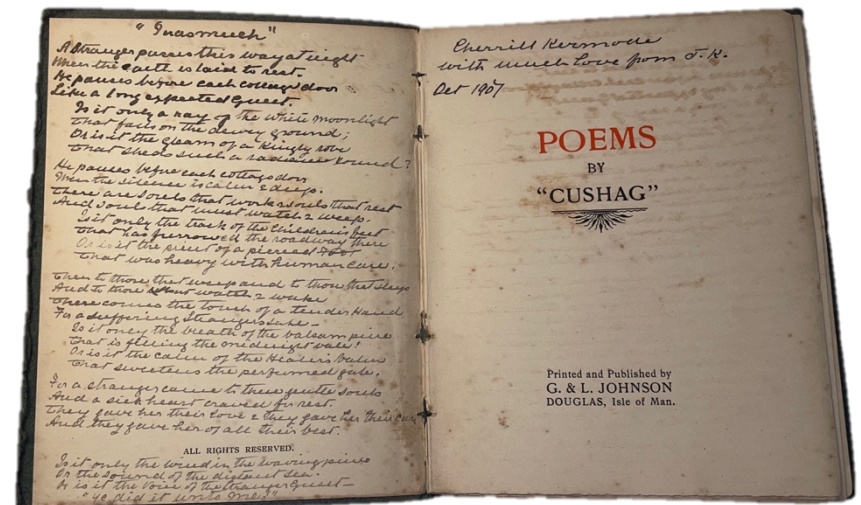 "Inasmuch"
A Stranger passes this way at night
When the earth is laid to rest.
He pauses before each cottage door
Like a long expected Guest.
Is it only a ray of the white moonlight
That falls on the dewy ground;
Or is it the gleam of a Kingly robe
That sheds such a radiance round?
He pauses before each cottage door
When the silence is calm & deep.
There are souls that work & souls that rest
And souls that must watch & weep.
Is it only the track of the Children's feet
That has furrowed the roadway there
Or is it the print of a pierced foot
That was heavy with human care.
Then to those that weep and to those that sleep
And to those watch & wake
There comes the touch of a tender Hand
For a suffering Stranger's sake—
Is it only the breath of the balsam pine
That is filling the midnight vale!
Or is it the calm of the Healer's balm
That sweetens the perfumed gale.
For a stranger came to these gentle souls
And a sick heart craved for rest.
They gave her their love & they gave her their care
And they gave her of all their best.
ALL RIGHTS RESERVED.
Is it only the wind in the waving pines
Or the sound of the distant sea.
Or is it the voice of the stranger Guest—
"Ye did it unto Me."
Cherrill Kermode
with much love from J. K.
Oct 1907
POEMS
BY
"CUSHAG"
Printed and Published by
G. & L. JOHNSON
DOUGLAS, Isle of Man.